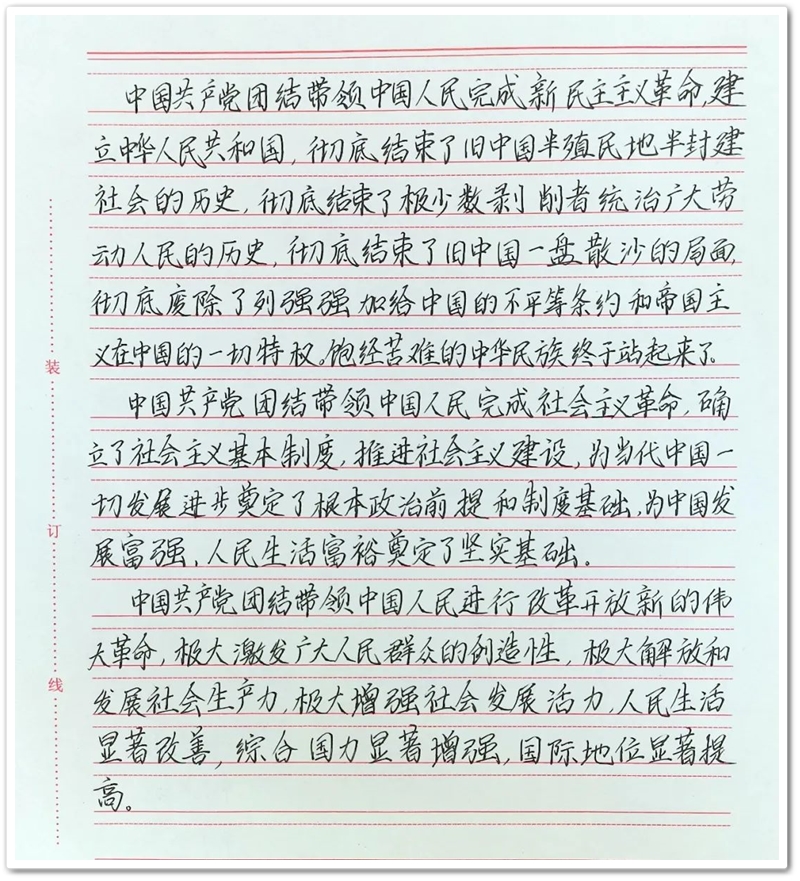 中国共产党团结带领中国人民完成新民主主义革命,建
立中华人民共和国，彻底结束了旧中国半殖民地半封建
社会的历史，彻底结束了极少数剥削者统治广大劳
动人民的历史，彻底结束了旧中国一盘散沙的局面，
彻底废除了列强强加给中国的不平等条约和帝国主
义在中国的一切特权。饱经苦难的中华民族终于站起来了.
中国共产党团结带领中国人民完成社会主义革命，确
立了社会主义基本制度，推进社会主义建设，为当代中国一
切发展进步奠定了根本政治前提和制度基础，为中国发
展富强，人民生活富裕奠定了坚实基础。
中国共产党团结带领中国人民进行改革开放新的伟
大革命，极大激发广大人民群众的创造性，极大解放和
发展社会生产力，极大增强社会发展活力，人民生活
显著改善，综合国力显著增强，国际地位显著提
高。
装
订
线